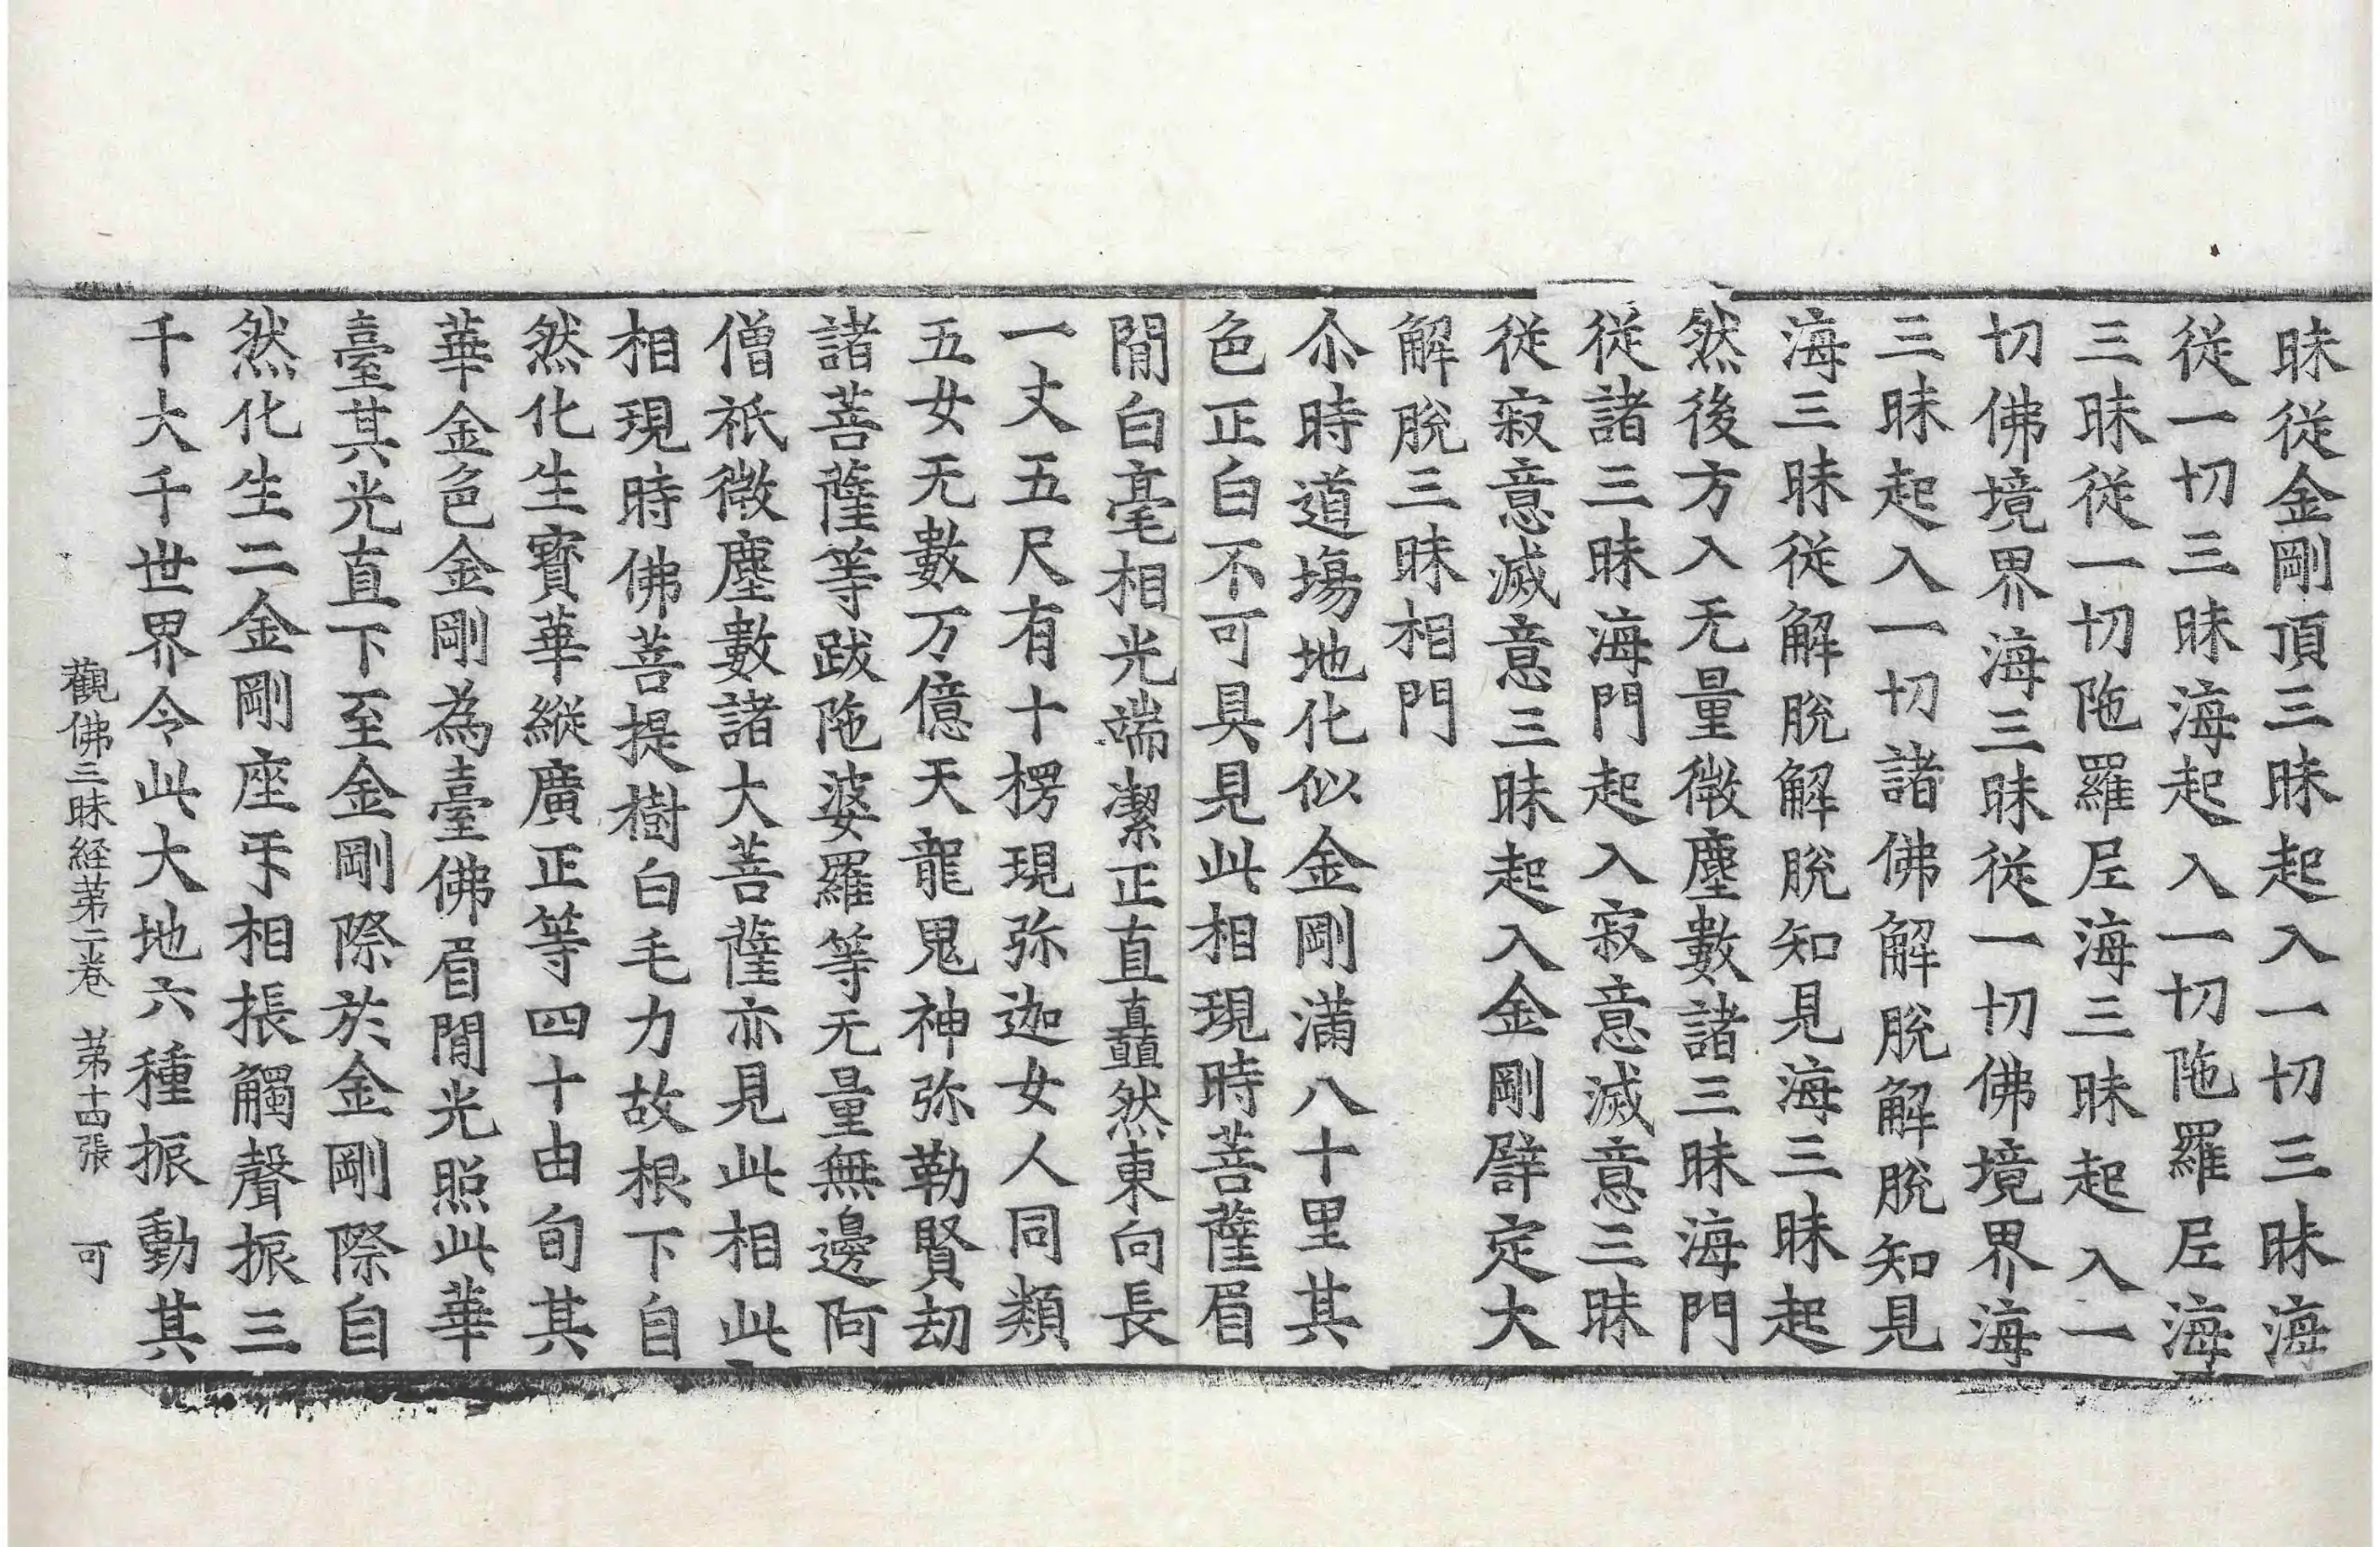 昧従金剛頂三昧起入一切三昧海
従一切三昧海起入一切陁羅𡰱海
三昧従一切陁羅𡰱海三昧起入一
切佛境界海三昧従一切佛境界海
三昧起入一切諸佛解脫解脫知見
海三昧従解脫解脫知見海三昧起
然後方入无量微塵數諸三昧海門
従諸三昧海門起入寂意滅意三昧
従寂意滅意三昧起入金剛譬定大
解脫三昧相門
尒時道場地化似金剛滿八十里其
色正白不可具見此相現時菩薩眉
間白毫相光端潔正直矗然東向長
一丈五尺有十楞現弥迦女人同類
五女无數万億天龍鬼神弥勒賢劫
諸菩薩等跋陁婆羅等无量無邊阿
僧祇微塵數諸大菩薩亦見此相此
相現時佛菩提樹白毛力故根下自
然化生寶華縱廣正等四十由旬其
華金色金剛為臺佛眉間光照此華
臺其光直下至金剛際於金剛際自
然化生二金剛座㸦相掁觸聲振三
千大千世界令此大地六種振動其
觀佛三昧経苐二卷 苐十四張 可